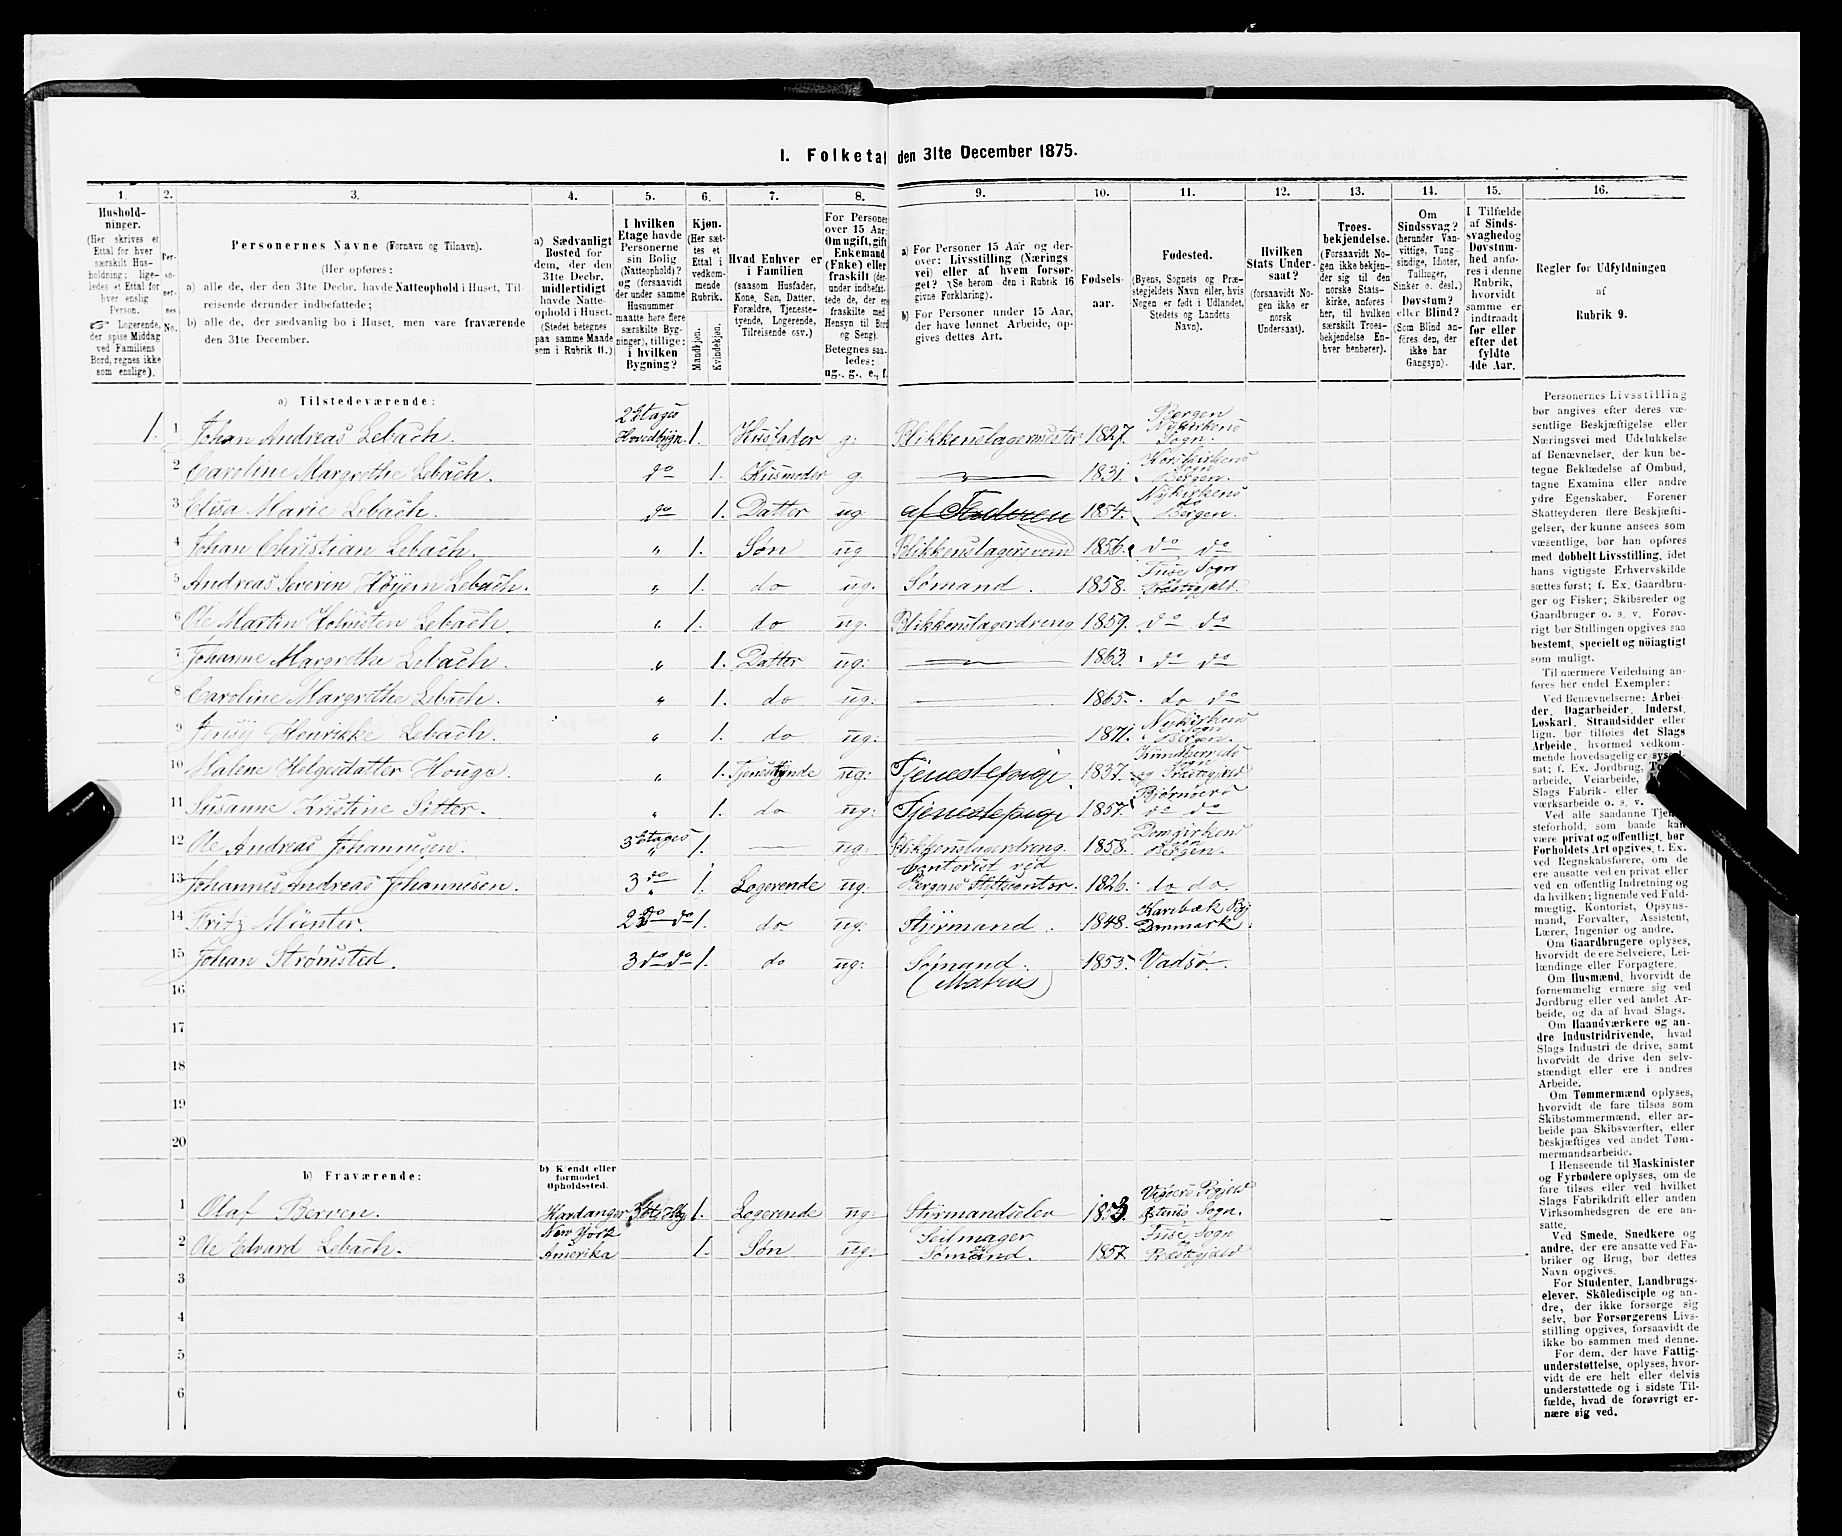 I. Folketal den 31te December 1875.
1. 2. 3. 4. 5. 6. 7. 8. 9. 10. 11. 12. 13. 14. 15. 16.
Hushold-
ninger.
(Her skrives et
Ettal for hver
særskilt Hus-
holdning; lige-
ledes et Ettal for
hver enslig
Person.
☞ Logerende,
der spise Middag
ved Familiens
Bord, regnes ikke
som enslige).
Per-
so-
ner-
nes
No.
Personernes Navne (Fornavn og Tilnavn).
(Her opføres:
a) alle de, der den 31te Decbr. havde Natteophold i Huset, Til-
reisende derunder indbefattede;
b) alle de, der sædvanlig bo i Huset, men vare fraværende
den 31te December.
a) Sædvanligt
Bosted for
dem, der den
31te Decbr.
midlertidigt
havde Natte-
ophold i Huset.
(Stedet betegnes
paa samme Maade
som i Rubrik 11.)
I hvilken
Etage havde
Personerne
sin Bolig
(Natteophold)?
og (forsaavidt
der under samme
Husnummer
maatte høre flere
særskilte Byg-
ninger), tillige:
i hvilken
Bygning?
Kjøn.
(Her sæt-
tes et
Ettal i
vedkom-
mende
Rubrik.
Mandkjøn.
Kvindekjøn.
Hvad Enhver er
i Familien
(saasom Husfader,
Kone, Søn, Datter,
Forældre, Tjeneste-
tyende, Logerende,
Tilreisende osv.)
For Personer
over 15 Aar:
Om ugift, gift,
Enkemand
(Enke) eller
fraskilt (der-
under indbefat-
tede de, der ere
fraskilte med
Hensyn til Bord
og Seng).
Betegnes saa-
ledes:
ug., g., e., f.
a) For Personer 15 Aar og der-
over: Livsstilling (Nærings
vei) eller af hvem forsør-
get? (Se herom den i Rubrik 16
givne Forklaring).
b) For Personer under 15 Aar,
der have lønnet Arbeide, op-
gives dettes Art.
Fødsels-
aar.
Fødested.
(Byens, Sognets og Præ-
stegjeldets Navn eller, hvis
Nogen er født i Udlandet,
Stedets og Landets
Navn).
Hvilken
Stats Under-
saat?
(forsaavidt No-
gen ikke er
norsk
Undersaat).
Troes-
bekjendelse.
(Forsaavidt No-
gen ikke bekjen-
der sig til den
norske Stats-
kirke, anføres
her, til hvilken
særskilt Troes-
bekjendelse En-
hver henhører).
Om
Sindssvag?
(herunder Van-
vittige, Tung-
sindige, Idioter,
Tullinger,
Sinker o. desl.)
Døvstum?
eller Blind?
(Som Blind an-
føres den, der
ikke har
Gangsyn).
I Tilfælde
af Sinds-
svaghed og
Døvstum-
hed anfø-
res i denne
Rubrik,
hvorvidt
samme er
indtraadt
før eller
efter det
fyldte
4de Aar.
Regler for Udfyldningen
af
Rubrik 9.
a) Tilstedeværende:
1. 1 Johan Andreas Lebach. 2 Etages Hovedbygn. 1. Husfader g: Blikkenslagermester 1827. Bergen Nykirkens Sogn.
2 Caroline Margrethe Lebach. do 1. Husmoder g. — 1831. Korskirkens Sogn Bergen.
3 Elisa Marie Lebach. do 1. Datter ug. af Faderen 1854. Nykirkens do Bergen.
4 Johan Christian Lebach. " 1. Søn ug Blikkenslagersvend 1856. do do
5 Andreas Severin Høyem Lebach. " 1. do ug. Sømand. 1858. Fuse Sogn og Præstegjeld.
6 Ole Martin Holmsten Lebach. " 1. do ug. Blikkenslagerdreng 1859. do do
7 Johanne Margrethe Lebach. " 1. Datter ug: — 1863. do do
8 Caroline Margrethe Lebach. " 1. do ug: — 1865. do do
9 Jensy Henrikke Lebach. " 1. do ug: — 1871. Nykirkens Sogn Bergen.
10 Malene Helgesdatter Houge. " 1. Tjenesttynde ug: Tjenestepige. 1837. Kvindherreds Sogn og Præstegjeld
11 Susanne Kristine Sitter. " 1. do ug: Tjenestepige 1857. do do
12 Ole Andreas Johannesen. 3 Etages " 1. — ug: Blikkenslagerdreng. 1858. Domkirkens Sogn Bergen.
13 Johannes Andreas Johannesen. 3 do " 1. Logerende ug: Contorist ved Bergens Stiftscontor. 1826. do do.
14 Fritz Münter. 2 do do 1. do ug: Styrmand. 1848. Karebæk By Danmark.
15 Johan Strømsted. 3 do do 1. do ug: Sømand. (Matros) 1855. Vadsø.
16
17
18
19
20
b) Fraværende:
b) Kjendt eller
formodet
Opholdssted.
1 Olaf Berven. Hardanger 1. Logerende ug: Styrmandselev 1853. Vigøers Prgjeld Østensø Sogn.
2 Ole Edvard Lebach. New York Amerika 1. Søn ug: Seilmager Sømand. 1857 Fuse Sogn og Præstegjeld
3
4
5
6
Personernes Livsstilling
bør angives efter deres væ-
sentlige Beskjæftigelse eller
Næringsvei med Udelukkelse
af Benævnelser, der kun be-
tegne Beklædelse af Ombud,
tagne Examina eller andre
ydre Egenskaber. Forener
Skatteyderen flere Beskjæfti-
gelser, der kunne ansees som
væsentlige, bør han opføres
med dobbelt Livsstilling, idet
hans vigtigste Erhvervskilde
sættes først; f. Ex. Gaardbru-
ger og Fisker; Skibsreder og
Gaardbruger o. s. v. Forøv-
rigt bør Stillingen opgives saa
bestemt, specielt og nøiagtigt
som muligt.
Til nærmere Veiledning an-
føres her endel Exempler:
Ved Benævnelserne: Arbei-
der, Dagarbeider, Inderst,
Løskarl, Strandsidder eller
lign. bør tilføies det Slags
Arbeide, hvormed vedkom-
mende hovedsagelig er syssel-
sat; f. Ex. Jordbrug,
arbeide, Veiarbeide,
Slags Fabrik- eller
værksarbeide o. s. v.
Ved alle saadanne Tjene-
steforhold, som baade kan
være privat og offentligt, bør
Forholdets Art opgives, t. Ex.
ved Regnskabsførere, om de
ere ansatte ved en privat eller
ved en offentlig Indretning og
da hvilken; lignende ved Fuld-
mægtig, Kontorist, Opsyns-
mand, Forvalter, Assistent,
Lærer, Ingeniør og andre.
Om Gaardbrugere oplyses,
hvorvidt de ere Selveiere, Lei-
lændinge eller Forpagtere.
Om Husmænd, hvorvidt de
fornemmelig ernære sig ved
Jordbrug eller ved andet Ar-
beide, og da af hvad Slags.
Om Haandværkere og an-
dre Industridrivende, hvad
Slags Industri de drive, samt
hvorvidt de drive den selv-
stændigt eller ere i andres
Arbeide.
Om Tømmermænd oplyses,
hvorvidt de fare tilsøs som
Skibstømmermænd, eller ar-
beide paa Skibsværfter, eller
beskjæftiges ved andet Tøm-
mermandsarbeide.
I Henseende til Maskinister
og Fyrbødere oplyses, om de
fare tilsøs eller ved hvilket
Slags Fabrikdrift eller anden
Virksomhedsgren de ere an-
satte.
Ved Smede, Snedkere og
andre, der ere ansatte ved Fa-
briker og Brug, bør dettes
Navn opgives.
For Studenter, Landbrugs-
elever, Skoledisciple og an-
dre, der ikke forsørge sig
selv, bør Forsørgerens Livs-
stilling opgives, forsaavidt de
ikke bo sammen med denne.
For dem, der have Fattig-
understøttelse, oplyses, hvor-
vidt de ere helt eller delvis
understøttede og i sidste Til-
fælde, hvad de forøvrigt er-
nære sig ved.